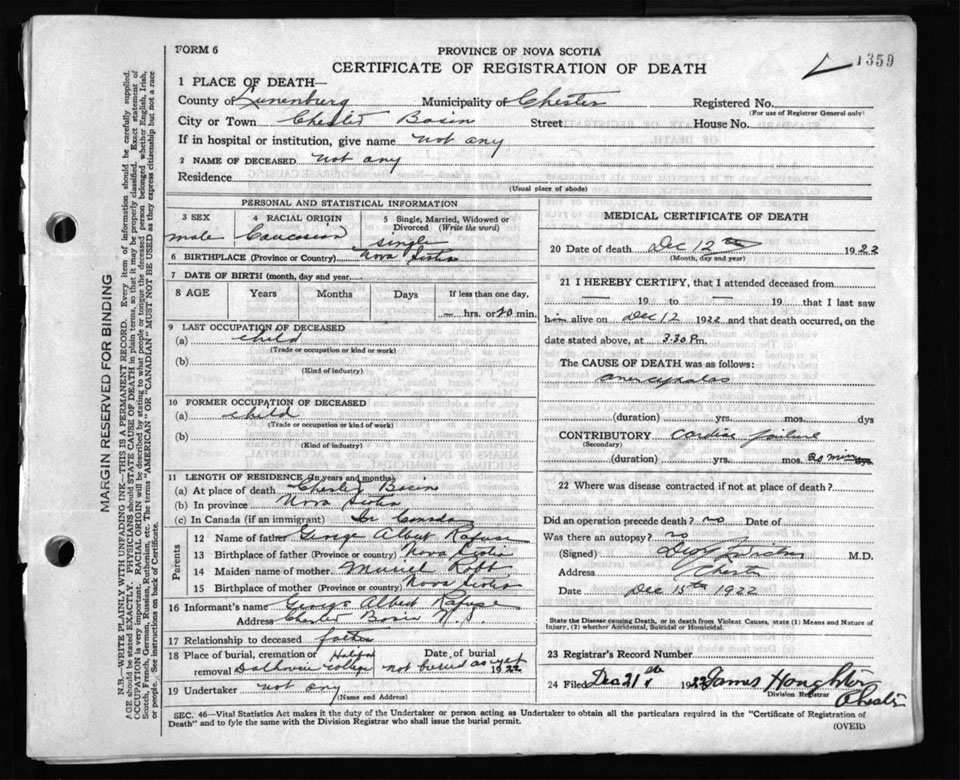 FORM 6
PROVINCE OF NOVA SCOTIA
CERTIFICATE OF REGISTRATION OF DEATH
1359
1 PLACE OF DEATH—
County of Lunenburg Municipality of Chester Registered No.
(For use of Registrar General only)
City or Town Chester Basin Street House No.
If in hospital or institution, give name not any
2 NAME OF DECEASED not any
Residence
(Usual place of abode)
PERSONAL AND STATISTICAL INFORMATION
3 SEX 4 RACIAL ORIGIN 5 Single, Married, Widowed or Divorced (Write the word)
male Caucasian single
6 BIRTHPLACE (Province or Country) Nova Scotia
7 DATE OF BIRTH (month, day and year
8 AGE Years Months Days If less than one day,
— hrs. or 20 min.
9 LAST OCCUPATION OF DECEASED
(a) child
(Trade or occupation or kind or work)
(b)
(Kind of industry)
10 FORMER OCCUPATION OF DECEASED
(a) child
(Trade or occupation or kind of work)
(b)
(Kind of industry)
11 LENGTH OF RESIDENCE (In years and months)
(a) At place of death Chester Basin
(b) In province Nova Scotia
(c) In Canada (if an immigrant) In Canada
Parents
12 Name of father George Albert Rafuse
13 Birthplace of father (Province or country) Nova Scotia
14 Maiden name of mother. Muriel
15 Birthplace of mother (Province or country) Nova Scotia
16 Informant's name George Albert Rafuse
Address Chester Basin N.S.
17 Relationship to deceased father
18 Place of burial, cremation or Halifax Date of burial
removal Dalhousie College not buried as yet 1922
19 Undertaker not any
(Name and Address)
MEDICAL CERTIFICATE OF DEATH
20 Date of death Dec 12th 1922
(Month, day and year)
21 I HEREBY CERTIFY, that I attended deceased from
— 19 to — 19 that I last saw
him alive on Dec 12 1922 and that death occurred, on
date stated above, at 3.30 Pm.
The CAUSE OF DEATH was as follows:
anencephalos
(duration) yrs. mos. dys
CONTRIBUTORY cardiac failure
(Secondary)
(duration) yrs. mos. 20 min dys.
22 Where was disease contracted if not at place of death?
Did an operation precede death? no Date of
Was there an autopsy? no
(Signed) M.D.
Address Chester
Date Dec 15th 1922
State the Disease causing Death, or in death from Violent Causes, state (1) Means and Nature of Injury, (2) whether Accidental, Suicidal or Homicidal.
23 Registrar's Record Number
24 Filed Dec 21st 1922 James Houghton
Division Registrar
Chester
SEC. 46—Vital Statistics Act makes it the duty of the Undertaker or person acting as Undertaker to obtain all the particulars required in the "Certificate of Registration of
Death" and to fyle the same with the Division Registrar who shall issue the burial permit.
(OVER)
MARGIN RESERVED FOR BINDING
N.B.—WRITE PLAINLY WITH UNFADING INK—THIS IS A PERMANENT RECORD. Every item of information should be carefully supplied.
AGE should be stated EXACTLY. PHYSICIANS should STATE CAUSE OF DEATH in plain terms, so that it may be properly classified. Exact statement of
OCCUPATION is very important. RACIAL ORIGIN will be described by stating to what people or tongue the deceased person belonged whether English, Irish,
Scotch, French, German, Russian, Ruthenian, etc. The terms "AMERICAN" OR "CANADIAN" MUST NOT BE USED as they express citizenship but not a race
or people. See instructions on back of Certificate.